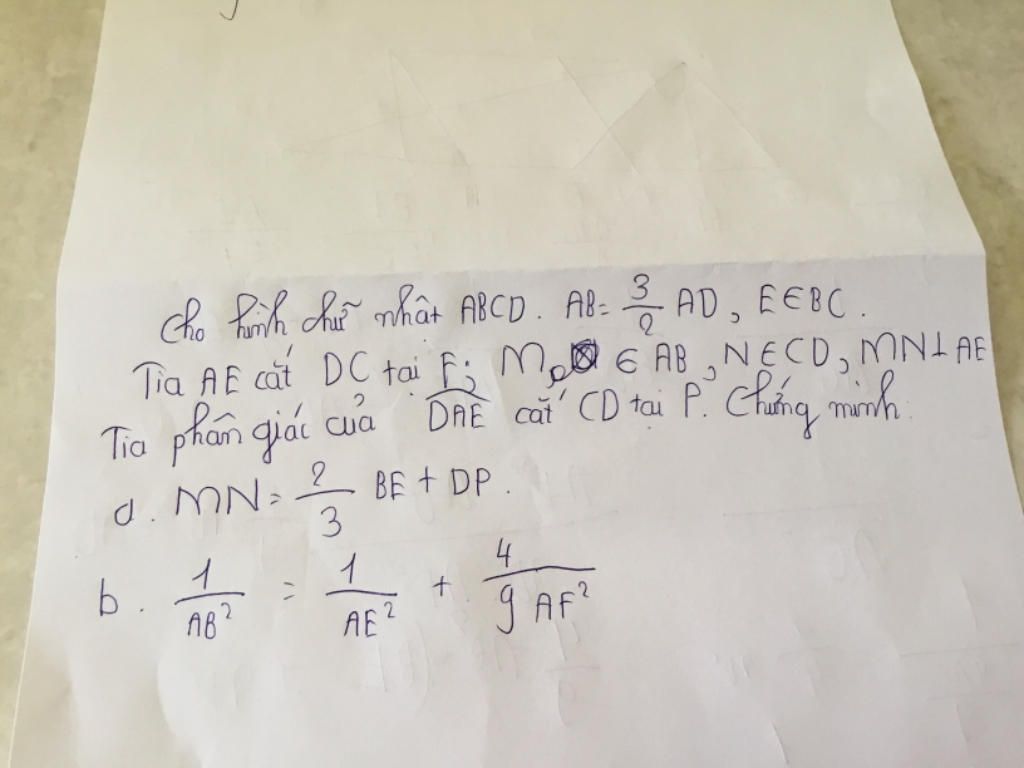 Cho hình chữ nhật ABCD. AB = 3/2 AD, E ∈ BC.
Tia AE cắt DC tại F; M, ∈ AB, N ∈ CD, MN ⊥ AE
Tia phân giác của \widehat{DAE} cắt CD tại P. Chứng minh:
a. MN = 2/3 BE + DP.
b. 1/AB² = 1/AE² + 4/9AF²